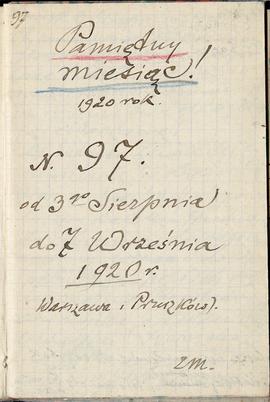 97
Pamiętny
miesiąc!
1920 rok.
N. 97.
od 3go Sierpnia
do 7 Września
1920 r.
Warszawa i Pruszków).
ZM.